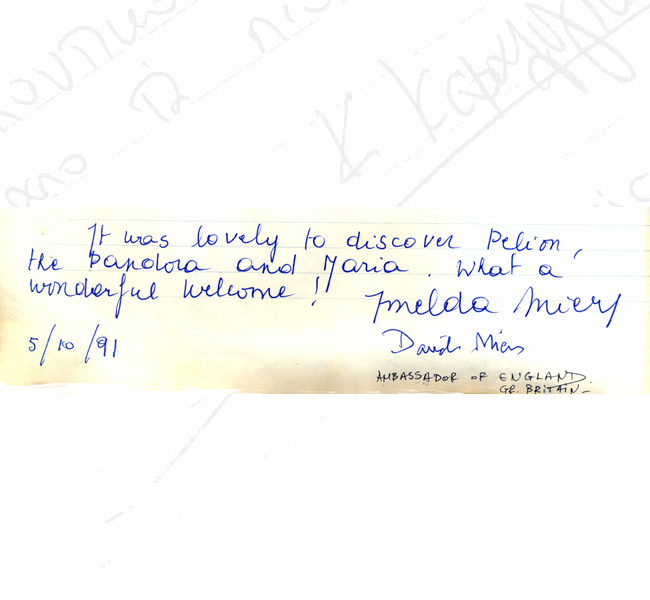 κ κ
It was lovely to discover Pelion,
the Pandora and Maria. What a
wonderful welcome! Imelda Miers
5/10/91
David Miers
AMBASSADOR OF ENGLAND.
GR. BRITAIN-